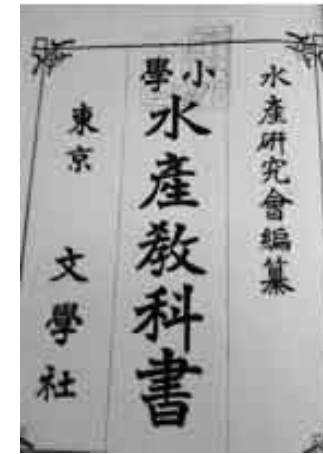 水産研究會編纂
小學
水産教科書
東京 文學社